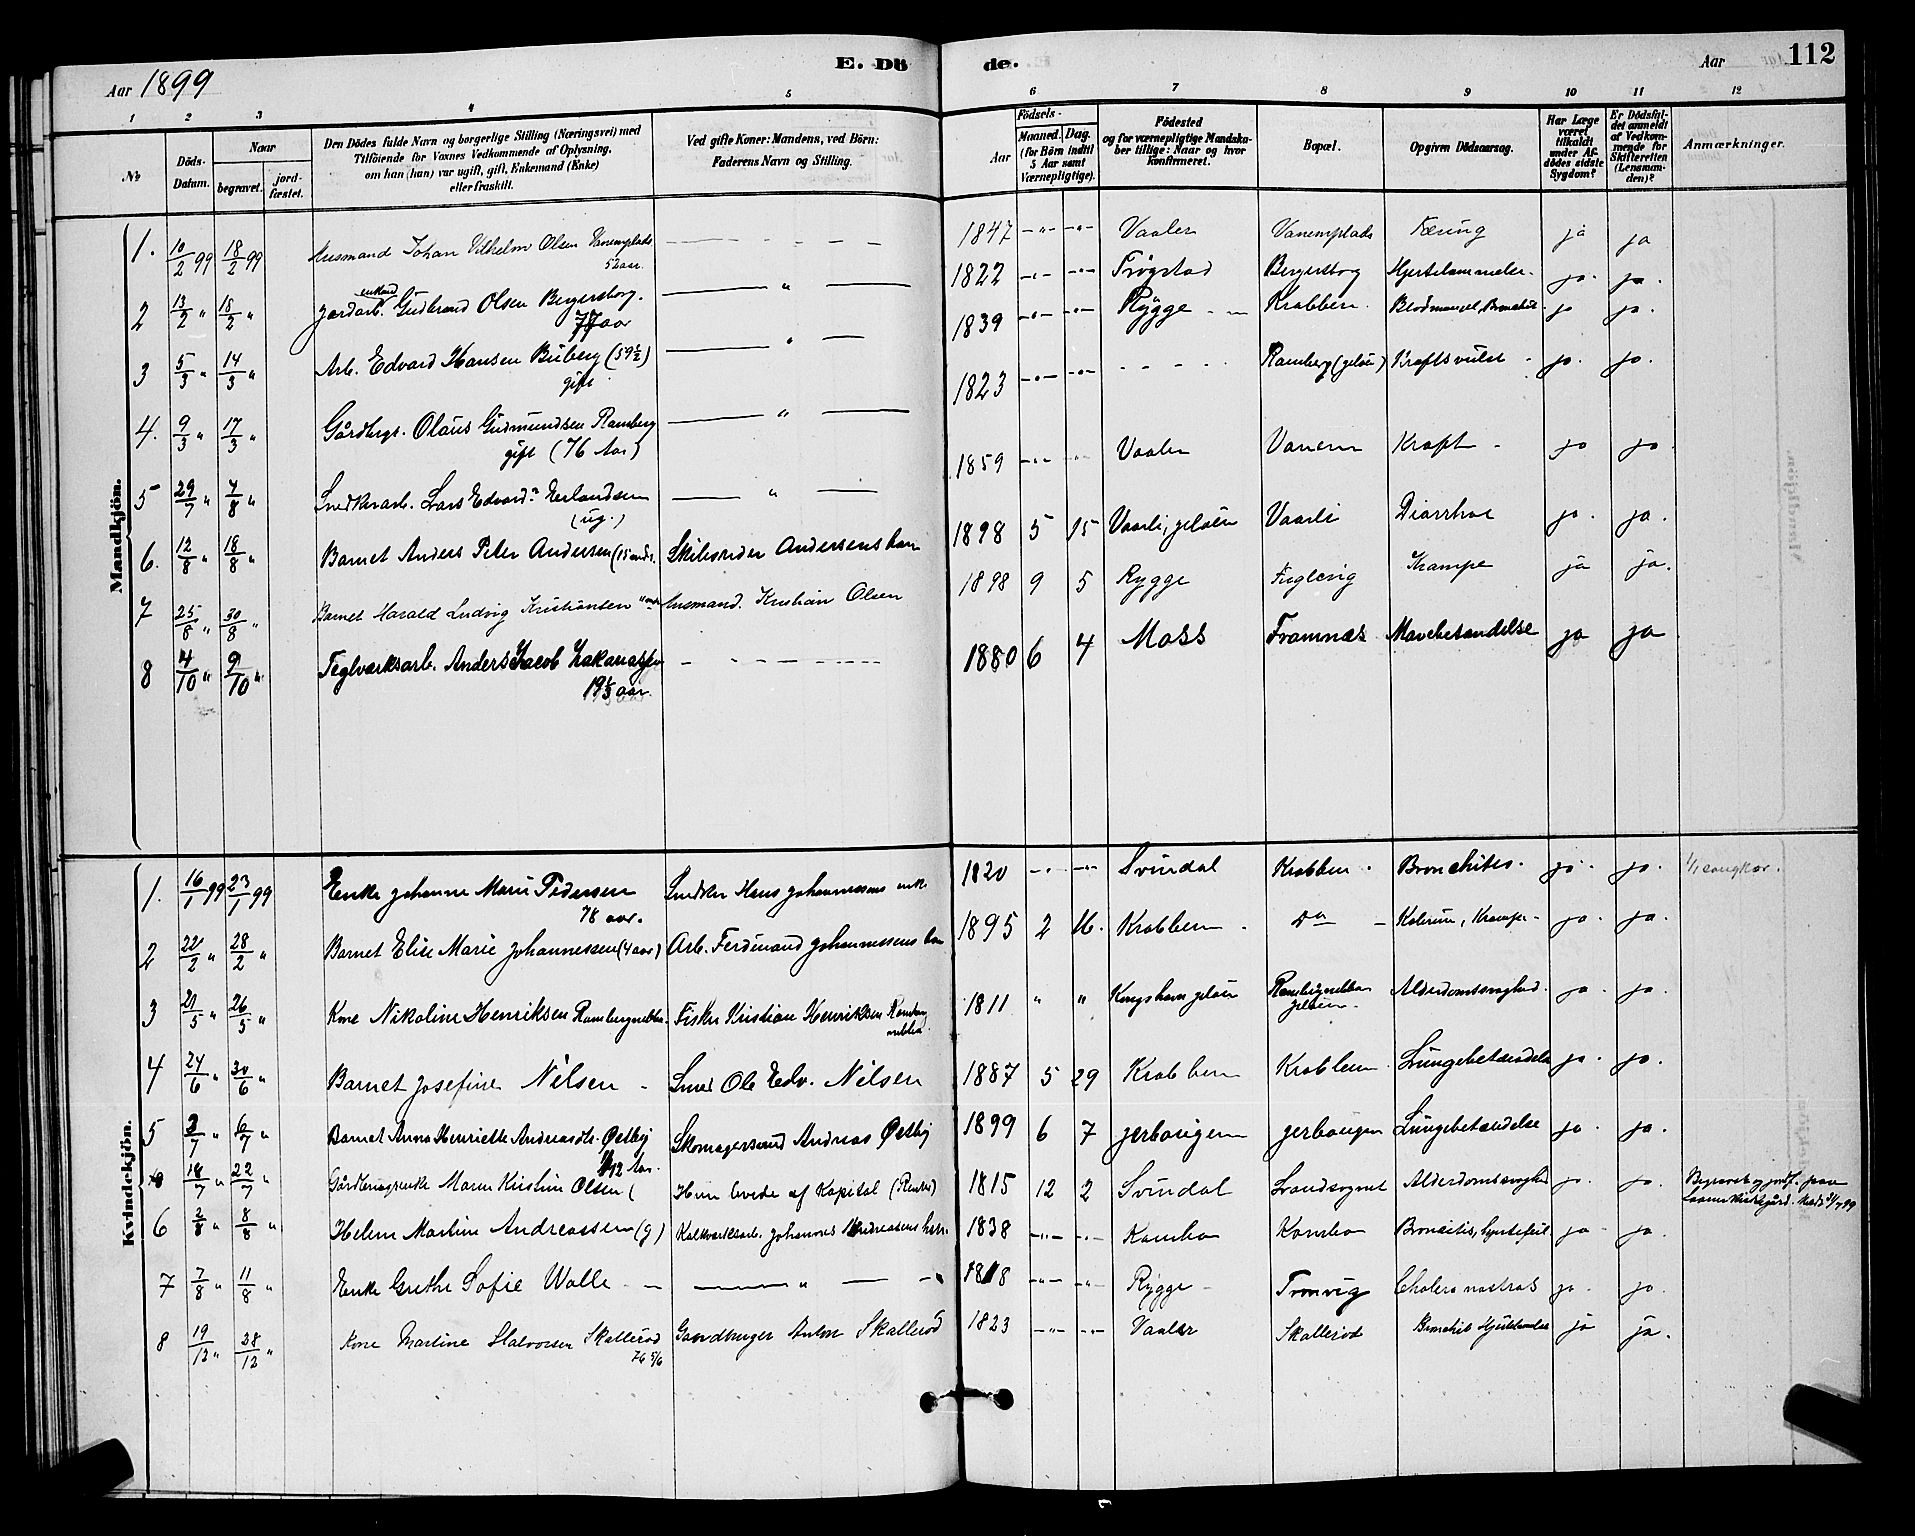 Aar 1899
E. Dö
de.
Aar
112
1 2 3 4 5 6 7 8 9 10 11 12
No
Döds-Datum.
Naar
begravet.
jord-fæstet.
Den Dödes fulde Navn og borgerlige Stilling (Næringsvei) med
Tilföiende for Voxnes Vedkommende af Oplysning,
om han (hun) var ugift, gift, Enkemand (Enke)
eller fraskilt.
Ved gifte Koner: Mandens, ved Börn:
Faderens Navn og Stilling.
Födsels-
Aar
Maaned. Dag.
(for Börn indtil
5 Aar samt
Værnepligtige).
Födested
og for værnepligtige Mandska-
ber tillige: Naar og hvor
konfirmeret.
Bopæl.
Opgiven Dödsaarsag.
Har Læge
været
tilkaldt
under Af-
dödes sidste
Sygdom?
Er Dödsfal-
det anmeldt
af Vedkom-
mende for
Skifteretten
(Lensman-
den)?
Anmærkninger.
Mandkjön.
1. 10/2 99 18/2 99 Husmand Johan Vilhelm Olsen Vanemplads 52 aar. 1847 Vaaler Vanemplads Tæring ja ja
2 13/2 " 18/2 " Jordarb. enkem Gudbrand Olsen Bergersborg. 77 aar " 1822 Trøgstad Bergersborg Hjertelammelse. ja. ja.
3 5/3 " 14/3 " Arb. Edvard Hansen Buberg (59 1/2) gift " 1839 Rygge Krabben. Blodmangel, Bronchit ja ja.
4. 9/3 " 17/3 " Gårdbrgr. Olaus Gudmundsen Ramberg gift (76 Aar) " 1823 Ramberg (Jeløen) Kræftsvulst ja. ja.
5 29/7 " 7/8 " Snedkerarb. Lars Edvard Erlandsen (ug.) " 1859 Vaaler Vanem Kræft ja ja.
6. 12/8 " 18/8 " Barnet Anders Peter Andersen (15 mdr. Skibsreder Andersens barn 1898 5 15 Vaarli, Jeløen Vaarli Diarrhoe ja. ja.
7 25/8 " 30/8 " Barnet Harald Ludvig Kristiansen Husmand. Kristian Olsen 1898 9 5 Rygge Fuglevig Krampe ja ja.
8 4/10 " 9/10 " Teglværksarb. Anders Jacob Zakariassen 19 1/3 aar. 1880 6 4 Moss Framnæs Mavebetændelse ja ja
Kvindekjön.
1. 16/1 99 23/1 99 Enke Johanne Marie Pedersen 78 aar. Snedker Hans Johannessens enke 1820 Svindal Krabben. Bronchitis. ja. ja.
2 22/2 " 28/2 " Barnet Elise Marie Johannessen (4 aar) Arb. Ferdinand Johannessens barn 1895 2 16. Krabben Do Krampe ja. ja.
3 21/5 " 26/5 " Kone Nikoline Henriksen Fisker Kristian Henriksen 1811 " " Kongshavn Jeløen Jeløen Alderdomssvaghed. ja. ja.
4 24/6 " 30/6 " Barnet Josefine Nilsen Smed Ole Edv. Nilsen 1887 5 29 Krabben Krabben Lungebetændelse ja. ja.
5 3/7 " 6/7 " Barnet Anna Henriette Andreasdtr. Østby 1/12 Aar. Skomagersvend Andreas Østby 1899 6 7 Jerbaugen Jerbaugen Lungebetændelse ja. ja.
18/7 " 22/7 " Gårdbrugerenke Maren Kristine Olsen Hun levede af Kapital (Renter) 1815 12 2 Svindal Landsognet Alderdomssvaghed ja. ja.
6 2/8 " 8/8 " Helene Martine Andreassen (g) Kalkværksarb. Johannes Andreassens 1838 Kambo Kambo Broncitis, hjertefeil. ja ja.
7 7/8 " 11/8 " Enke Grethe Sofie Walle " 1818 Rygge Tronvig Cholera nostras ja. ja.
8 19/12 " 28/12 " Kone Martine Halvorsen Skallerød 76 5/6 Gaardbruger Anton Skallerød 1823 Vaaler Skallerød ja ja.